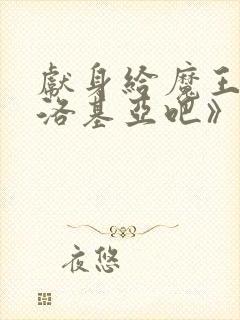 獻身給魔王
洛基亞吧》
夜悠